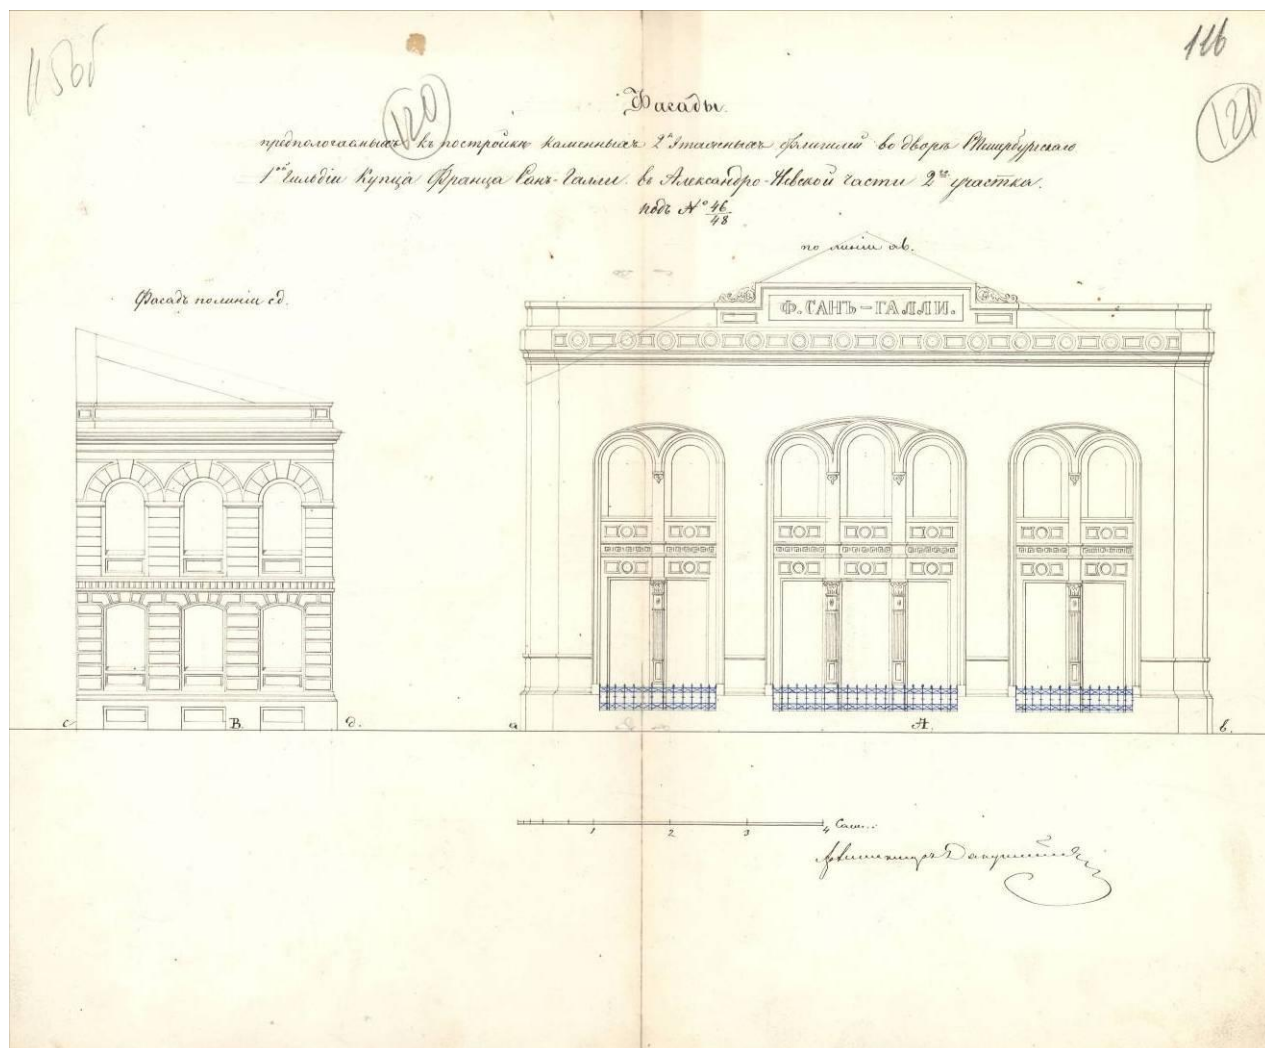 116
120
121
Фасады.
предпологаемыхъ къ постройкѣ каменныхъ 2хъ этажныхъ флигилей во дворѣ С. Петербургскаго
1ой Гильдіи Купца Франца Санъ-Галли. въ Александро-Невской части 2го участка.
подъ № 46/48
по линіи ав.
Фасадъ по линіи сд.
Ф. САНЪ-ГАЛЛИ.
с В. д.
а А. в.
1 2 3 4 Саж.
Архитекторъ